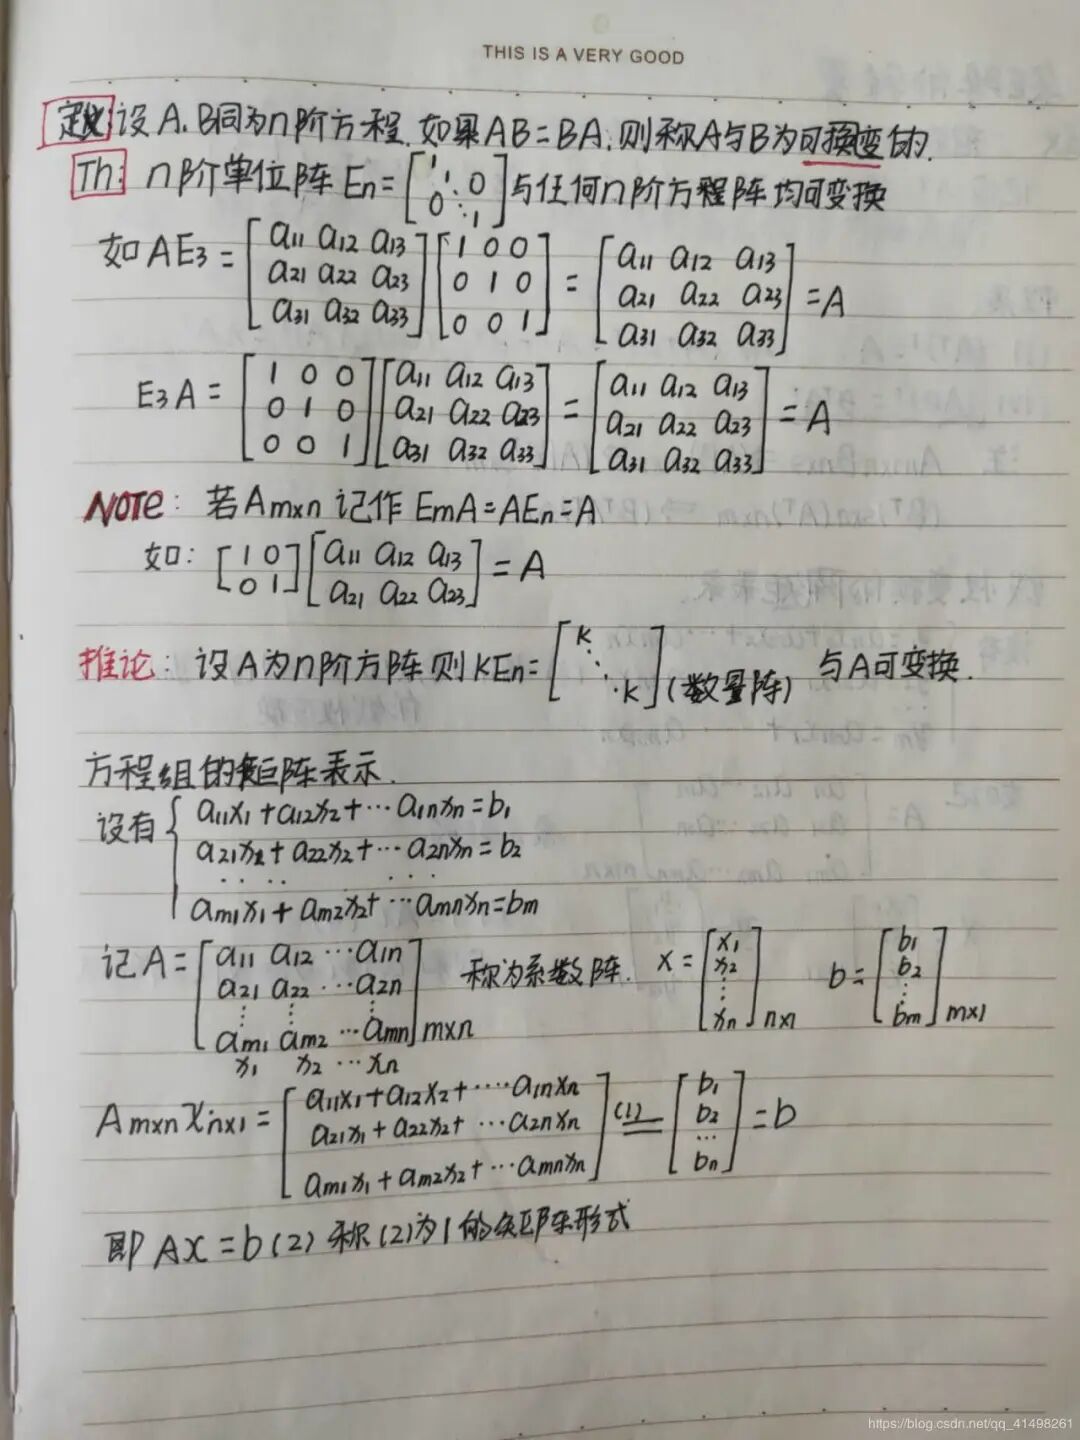 THIS IS A VERY GOOD
定义 设A.B同为n阶方程.如果AB=BA,则称A与B为可换变的.
Th: n阶单位阵 En=[1 1 ⋱ 0 0 1]与任何n阶方程阵均可变换
如AE3=[a11 a12 a13; a21 a22 a23; a31 a32 a33][1 0 0; 0 1 0; 0 0 1]=[a11 a12 a13; a21 a22 a23; a31 a32 a33]=A
E3A=[1 0 0; 0 1 0; 0 0 1][a11 a12 a13; a21 a22 a23; a31 a32 a33]=[a11 a12 a13; a21 a22 a23; a31 a32 a33]=A
NOTE: 若Am×n 记作 EmA=AEn=A
如: [1 0; 0 1][a11 a12 a13; a21 a22 a23]=A
推论: 设A为n阶方阵则KEn=[K ⋱ K](数量阵) 与A可变换.
方程组的矩阵表示.
设有{a11x1+a12x2+⋯a1nxn=b1
a21x2+a22x2+⋯a2nxn=b2
⋯⋯
am1x1+am2x2+⋯amnxn=bm
记A=[a11 a12 ⋯a1n; a21 a22 ⋯a2n; ⋮ ⋮; am1 am2 ⋯amn]m×n 称为系数阵. x=[x1; x2; ⋮; xn]n×1 b=[b1; b2; ⋮; bm]m×1
x1 x2 ⋯ xn
Am×n Xn×1=[a11x1+a12x2+⋯⋯a1nxn; a21x1+a22x2+⋯a2nxn; am1x1+am2x2+⋯amnxn] (1)= [b1; b2; ⋯; bn]=b
即 AX=b(2) 称(2)为1的矩阵形式
https://blog.csdn.net/qq_41498261